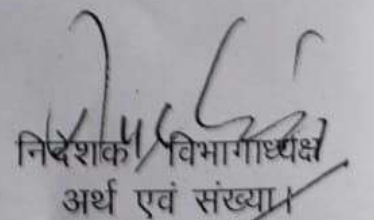 निदेशक / विभागाध्यक्ष
अर्थ एवं संख्या।